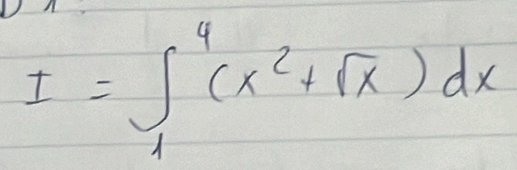 I = ∫₁⁴ (x² + √x) dx